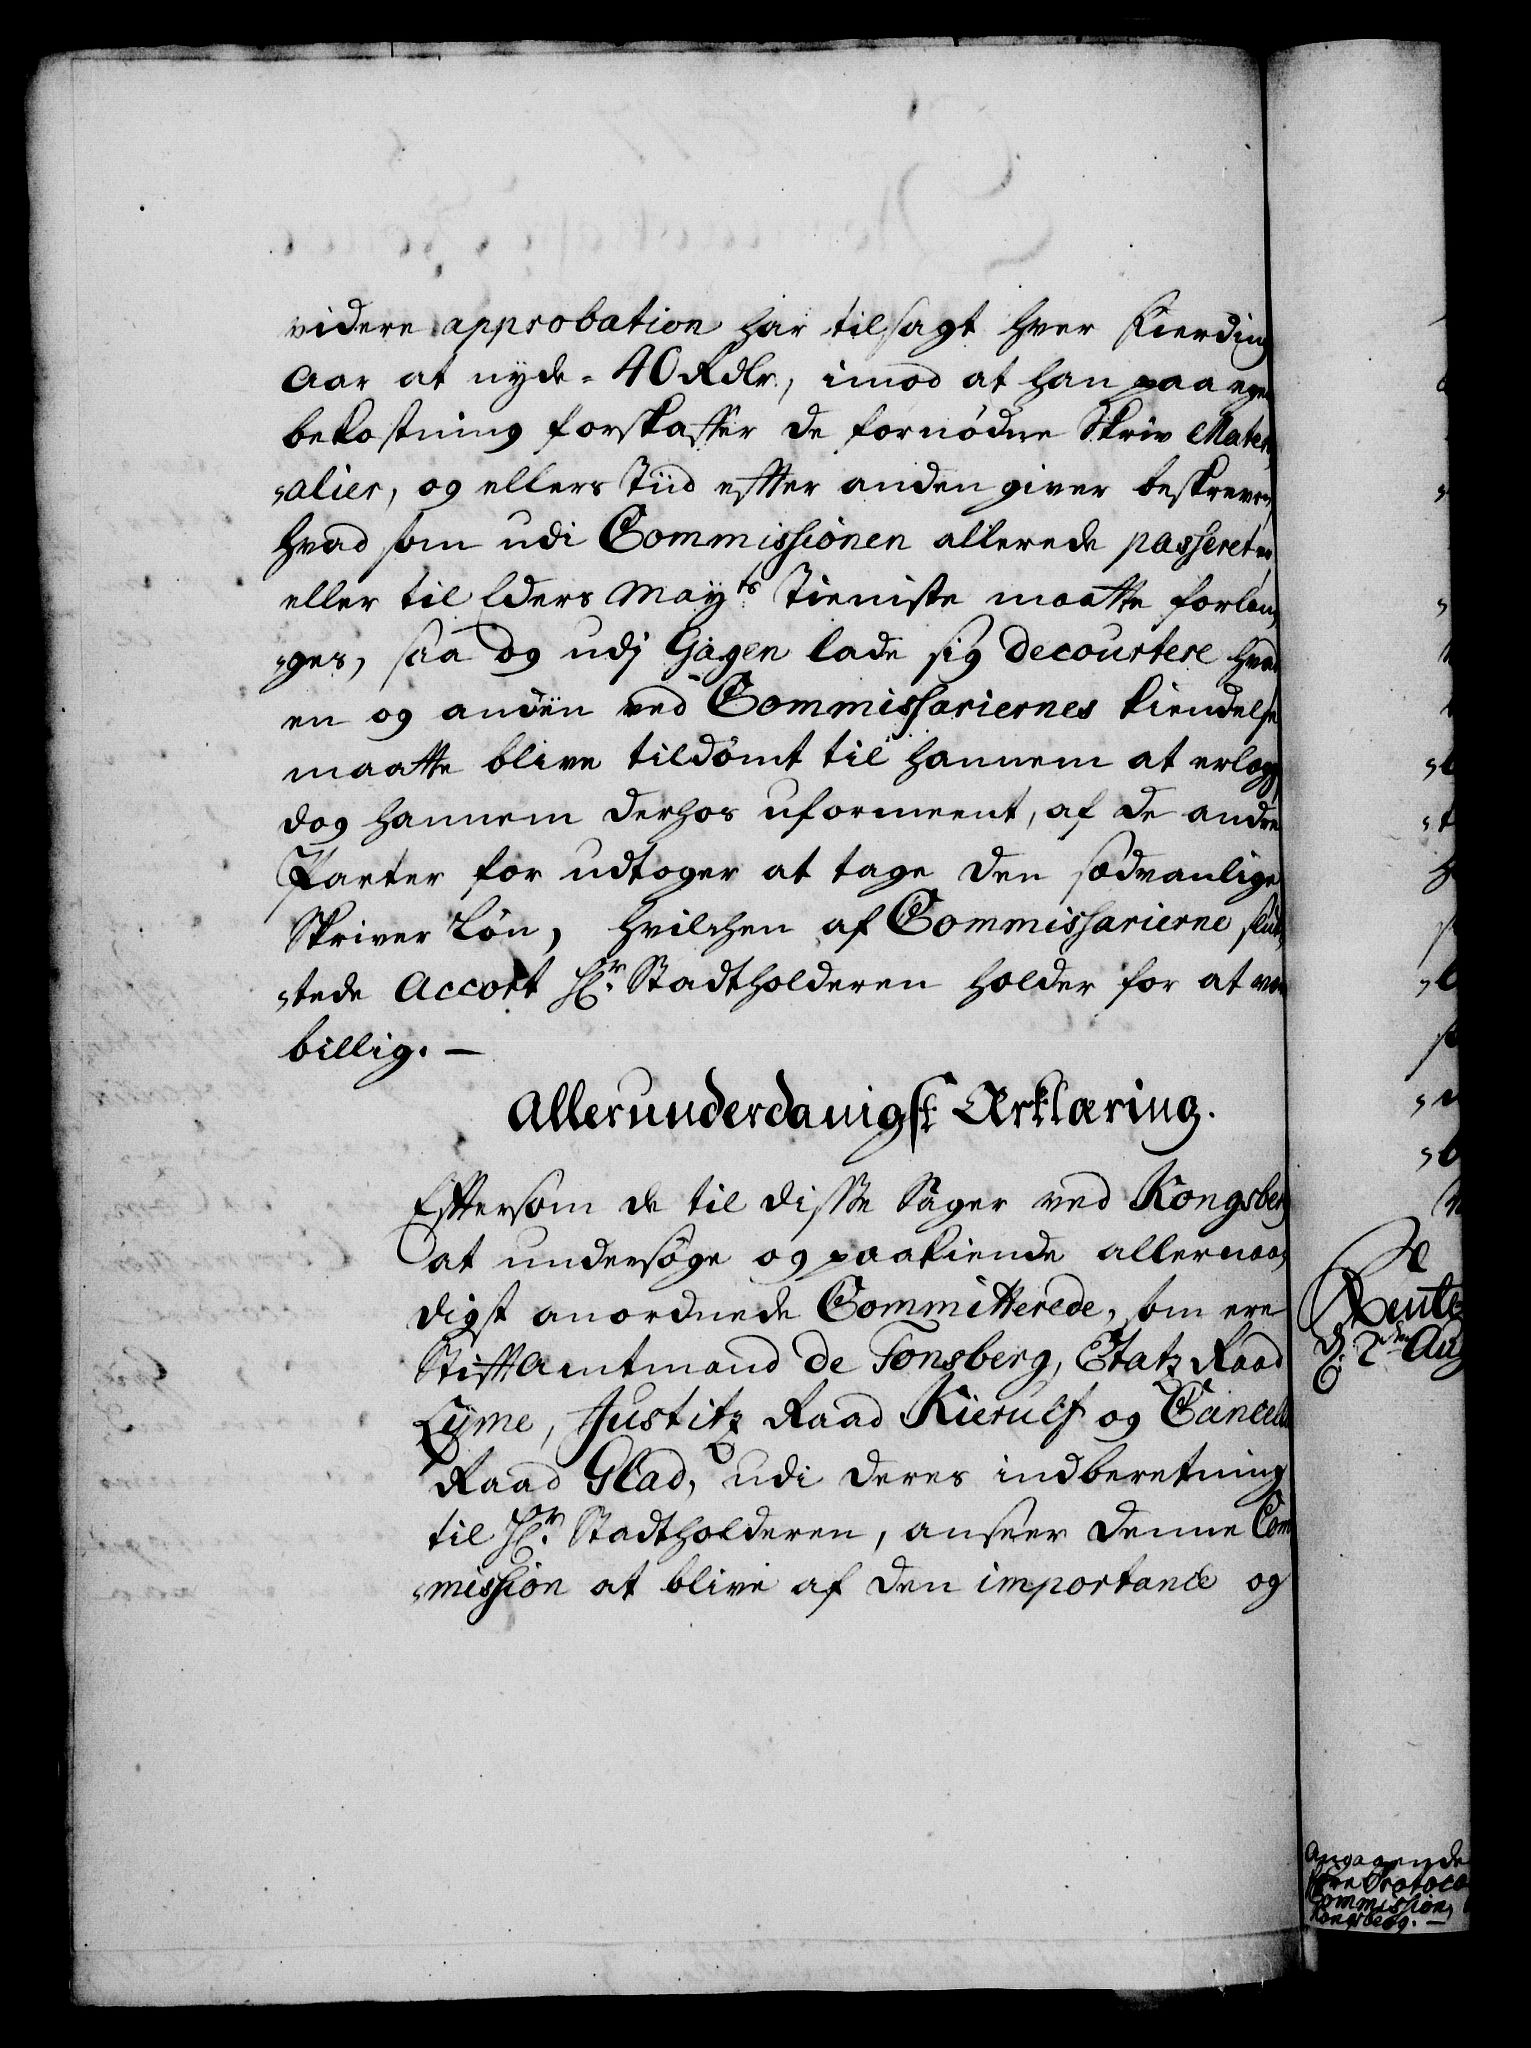 videre approbation har tilsagt hver Fierding
Aar at nyde - 40 Rdlr., imod at han paa egen
bekostning forskaffer de fornødne Skriv Materi
-alier, og ellers Tiid effter anden giver beskreven,
hvad som udi Commissionen allerede passeret er,
eller til Eders Mayts Tieniste maatte forlan,
-ges, saa og udj Gagen lade sig decourtere hvad
en og anden ved Commissariernes kiendelse
maatte blive tildømt til hannem at erlegge,
dog hannem derhos uformeent, af de andre
Parter for udtoger at tage den sædvanlige
Skriver Løn, hvilchen af Commissarierne slut,
-tede Accort Hr. Stadtholderen holder for at være
billig. —
Allerunderdanigst Erklæring.
Eftersom de til disse Sager ved Kongsberg
at undersøge og paakiende allernaa,
digst anordnede Committerede, som ere
Stiftamtmand de Tonsberg, Etatz Raad
Lyme, Justitz Raad Kierulf og Cancelli
Raad Glad, udi deres indberetning
til Hr. Stadtholderen, anseer denne Com
-mission at blive af den importance og
Rente
d. 2den Aug
Angaaende
Protoco
Commission
Kongsberg. —